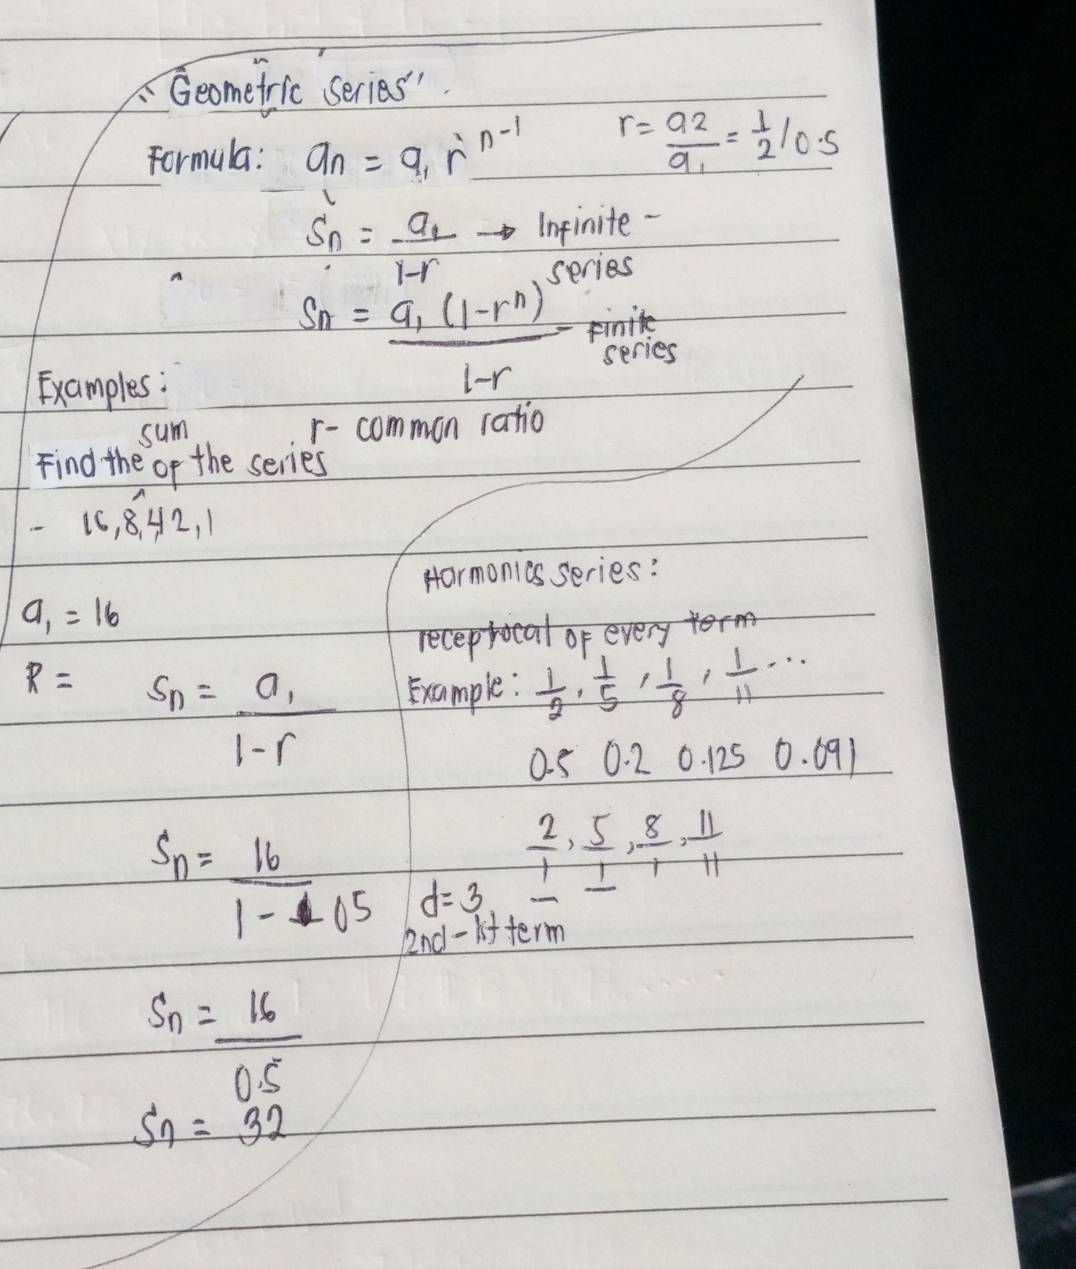 "Geometric series".
Formula: an = a₁ r^n-1
r = a2/a₁ = 1/2 / 0.5
Sn = a₁/1-r → Infinite -
series
Sn = a₁ (1-r^n)/1-r - Finite
series
Examples:
r - common ratio
sum
Find the ^ of the series
- 16,8,4,2,1
a₁ = 16
R =
Sn = a₁/1-r
Sn = 16/1-05
Sn = 16/0.5
Sn = 32
Harmonics series:
receptrocal of every term
Example: 1/2, 1/5, 1/8, 1/11 ...
0.5 0.2 0.125 0.091
2/1, 5/1, 8/1, 11/11
d=3
2nd - 1st term